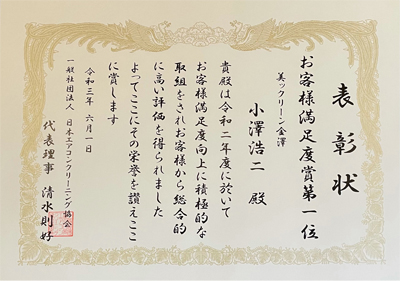 表彰状
お客様満足度賞第一位
美ックリーン金澤
小澤浩二 殿
貴殿は令和二年度に於いて
お客様満足度向上に積極的な
取組をされお客様から総合的
に高い評価を得られました
よってここにその栄誉を讃えここ
に賞します
令和三年 六月一日
一般社団法人 日本エアコンクリーニング協会
代表理事 清水則好